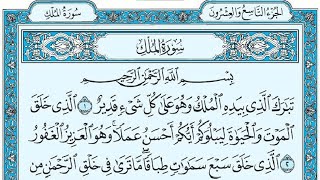 سُورَةُ المُلْكِ
الجُزْءُ التَّاسِعُ وَالعِشْرُونَ
سُورَةُ المُلْكِ
بِسْمِ اللَّهِ الرَّحْمَٰنِ الرَّحِيمِ
تَبَٰرَكَ الَّذِي بِيَدِهِ الْمُلْكُ وَهُوَ عَلَىٰ كُلِّ شَيْءٍ قَدِيرٌ ١ الَّذِي خَلَقَ
الْمَوْتَ وَالْحَيَوٰةَ لِيَبْلُوَكُمْ أَيُّكُمْ أَحْسَنُ عَمَلًا ۚ وَهُوَ الْعَزِيزُ الْغَفُورُ
٢ الَّذِي خَلَقَ سَبْعَ سَمَٰوَٰتٍ طِبَاقًا ۖ مَّا تَرَىٰ فِي خَلْقِ الرَّحْمَٰنِ مِن